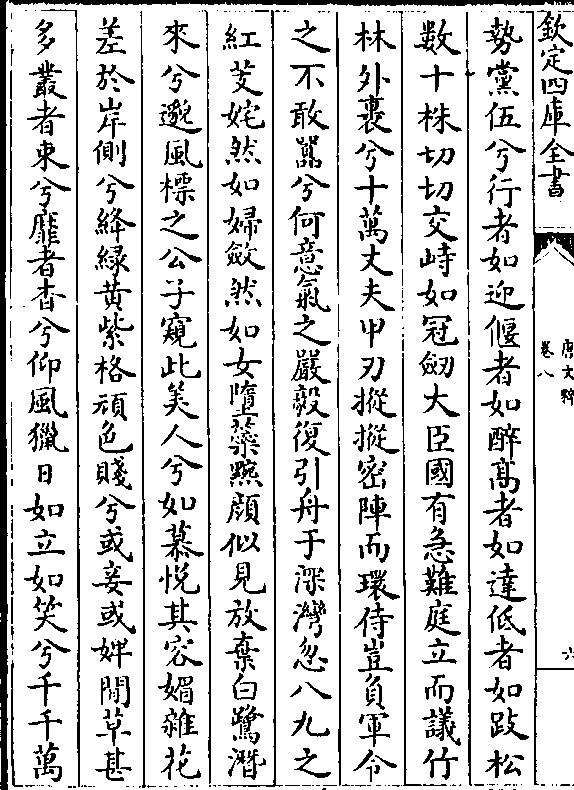 欽定四庫全書
唐文粹
卷八
六
勢黨伍兮行者如迎偃者如醉高者如達低者如跂松
數十株切切交峙如冠劒大臣國有急難庭立而議竹
林外裹兮十萬丈夫甲刃摐摐密陣而環侍豈負軍令
之不敢囂兮何意氣之嚴毅復引舟于深灣忽八九之
紅芰姹然如婦斂然如女墮蘂黦顔似見放棄白鷺潛
來兮邈風標之公子窺此美人兮如慕悦其容媚雜花
差於岸側兮絳綠黄紫格頑色賤兮或妾或婢閒草甚
多叢者束兮靡者杳兮仰風獵日如立如笑兮千千萬